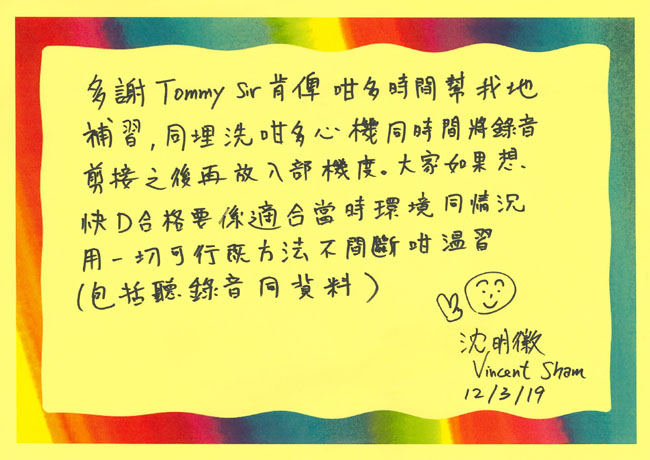 多謝 Tommy Sir 肯俾咁多時間幫我地
補習,同埋洗咁多心機同時間將錄音
剪接之後再放入部機度。大家如果想
快D合格要係適合當時環境同情況
用一切可行既方法不間斷咁溫習
(包括聽錄音同資料)
沈明徽
Vincent Sham
12/3/19